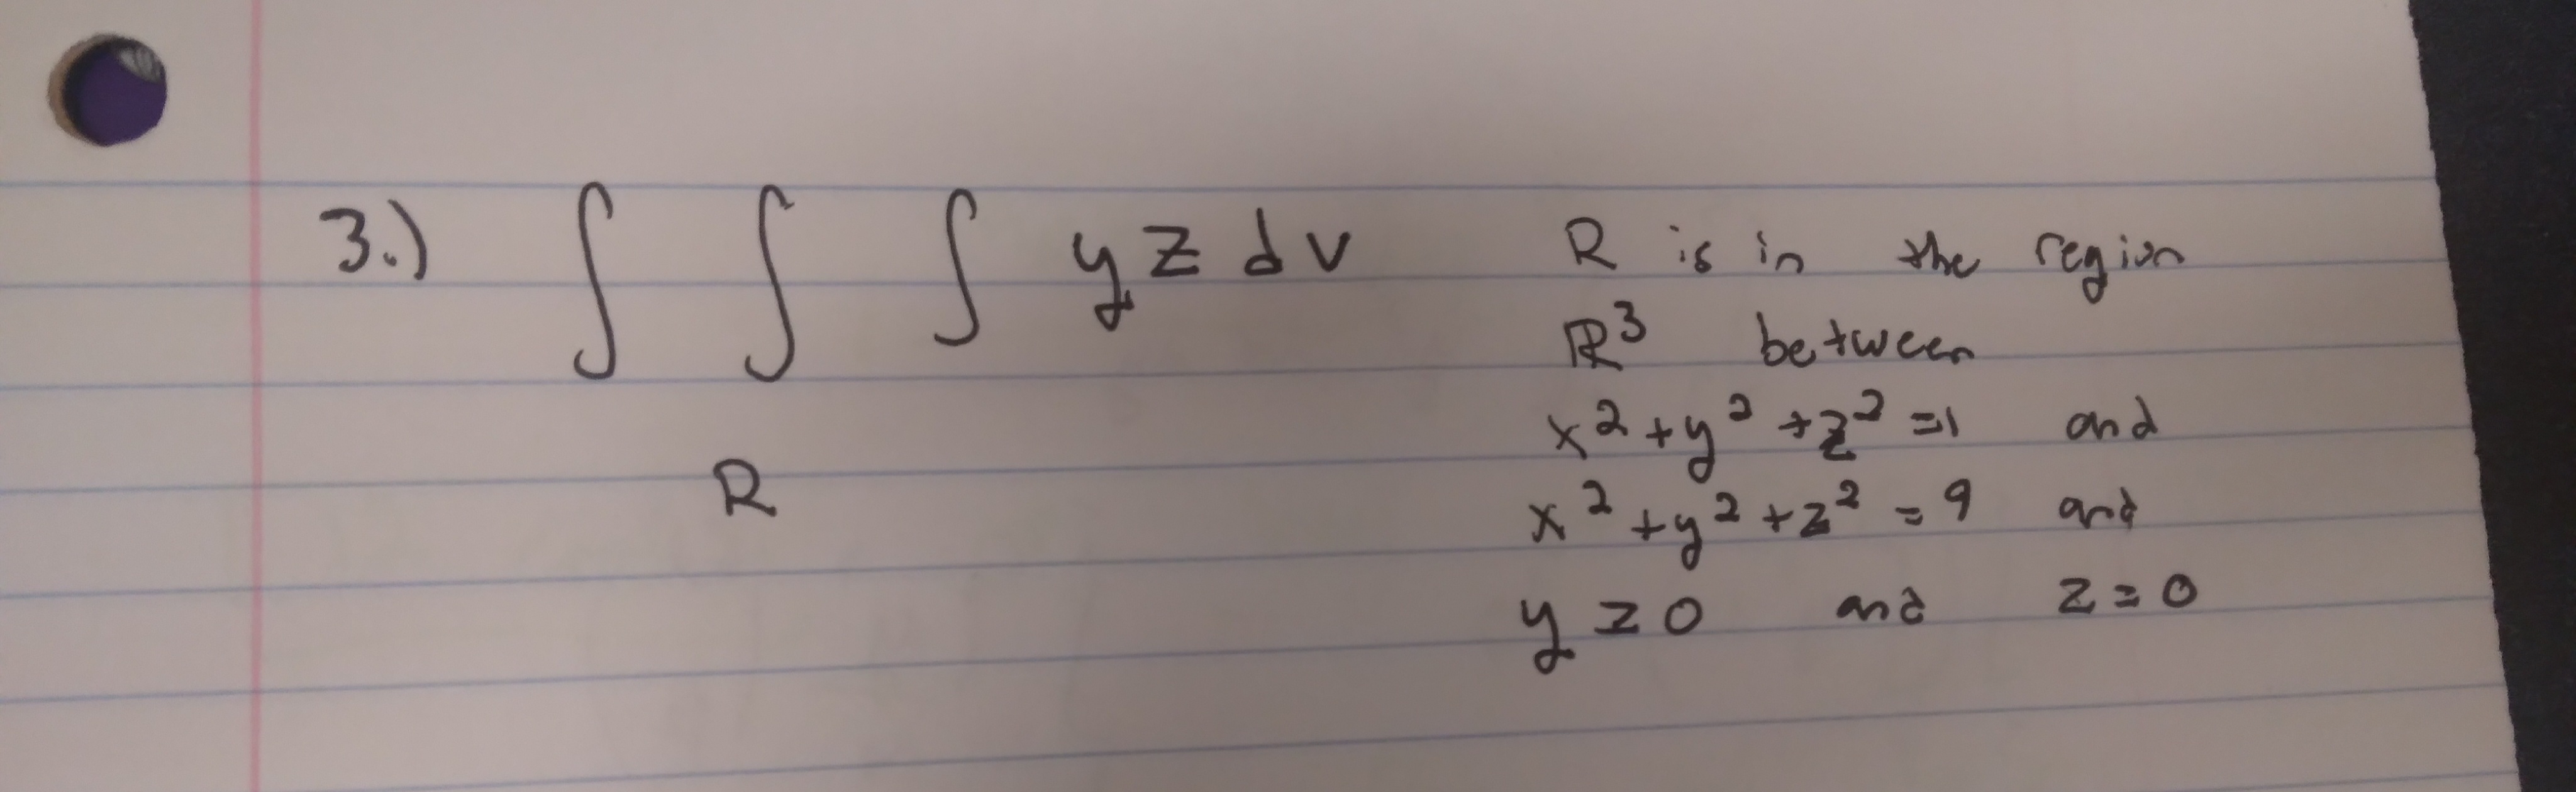 3.) ∫ ∫ ∫ yz dv R is in the region
ℝ³ between
x² + y² + z² = 1 and
R x² + y² + z² = 9 and
y = 0 and z = 0